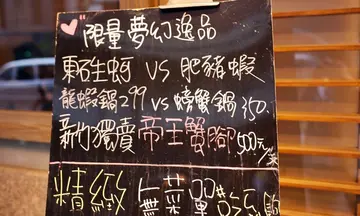 "限量夢幻逸品
東石生蚵 VS 肥豬蝦
龍蝦鍋299 vs 螃蟹鍋350
新竹獨賣帝王蟹腳500元/支
精緻無菜單